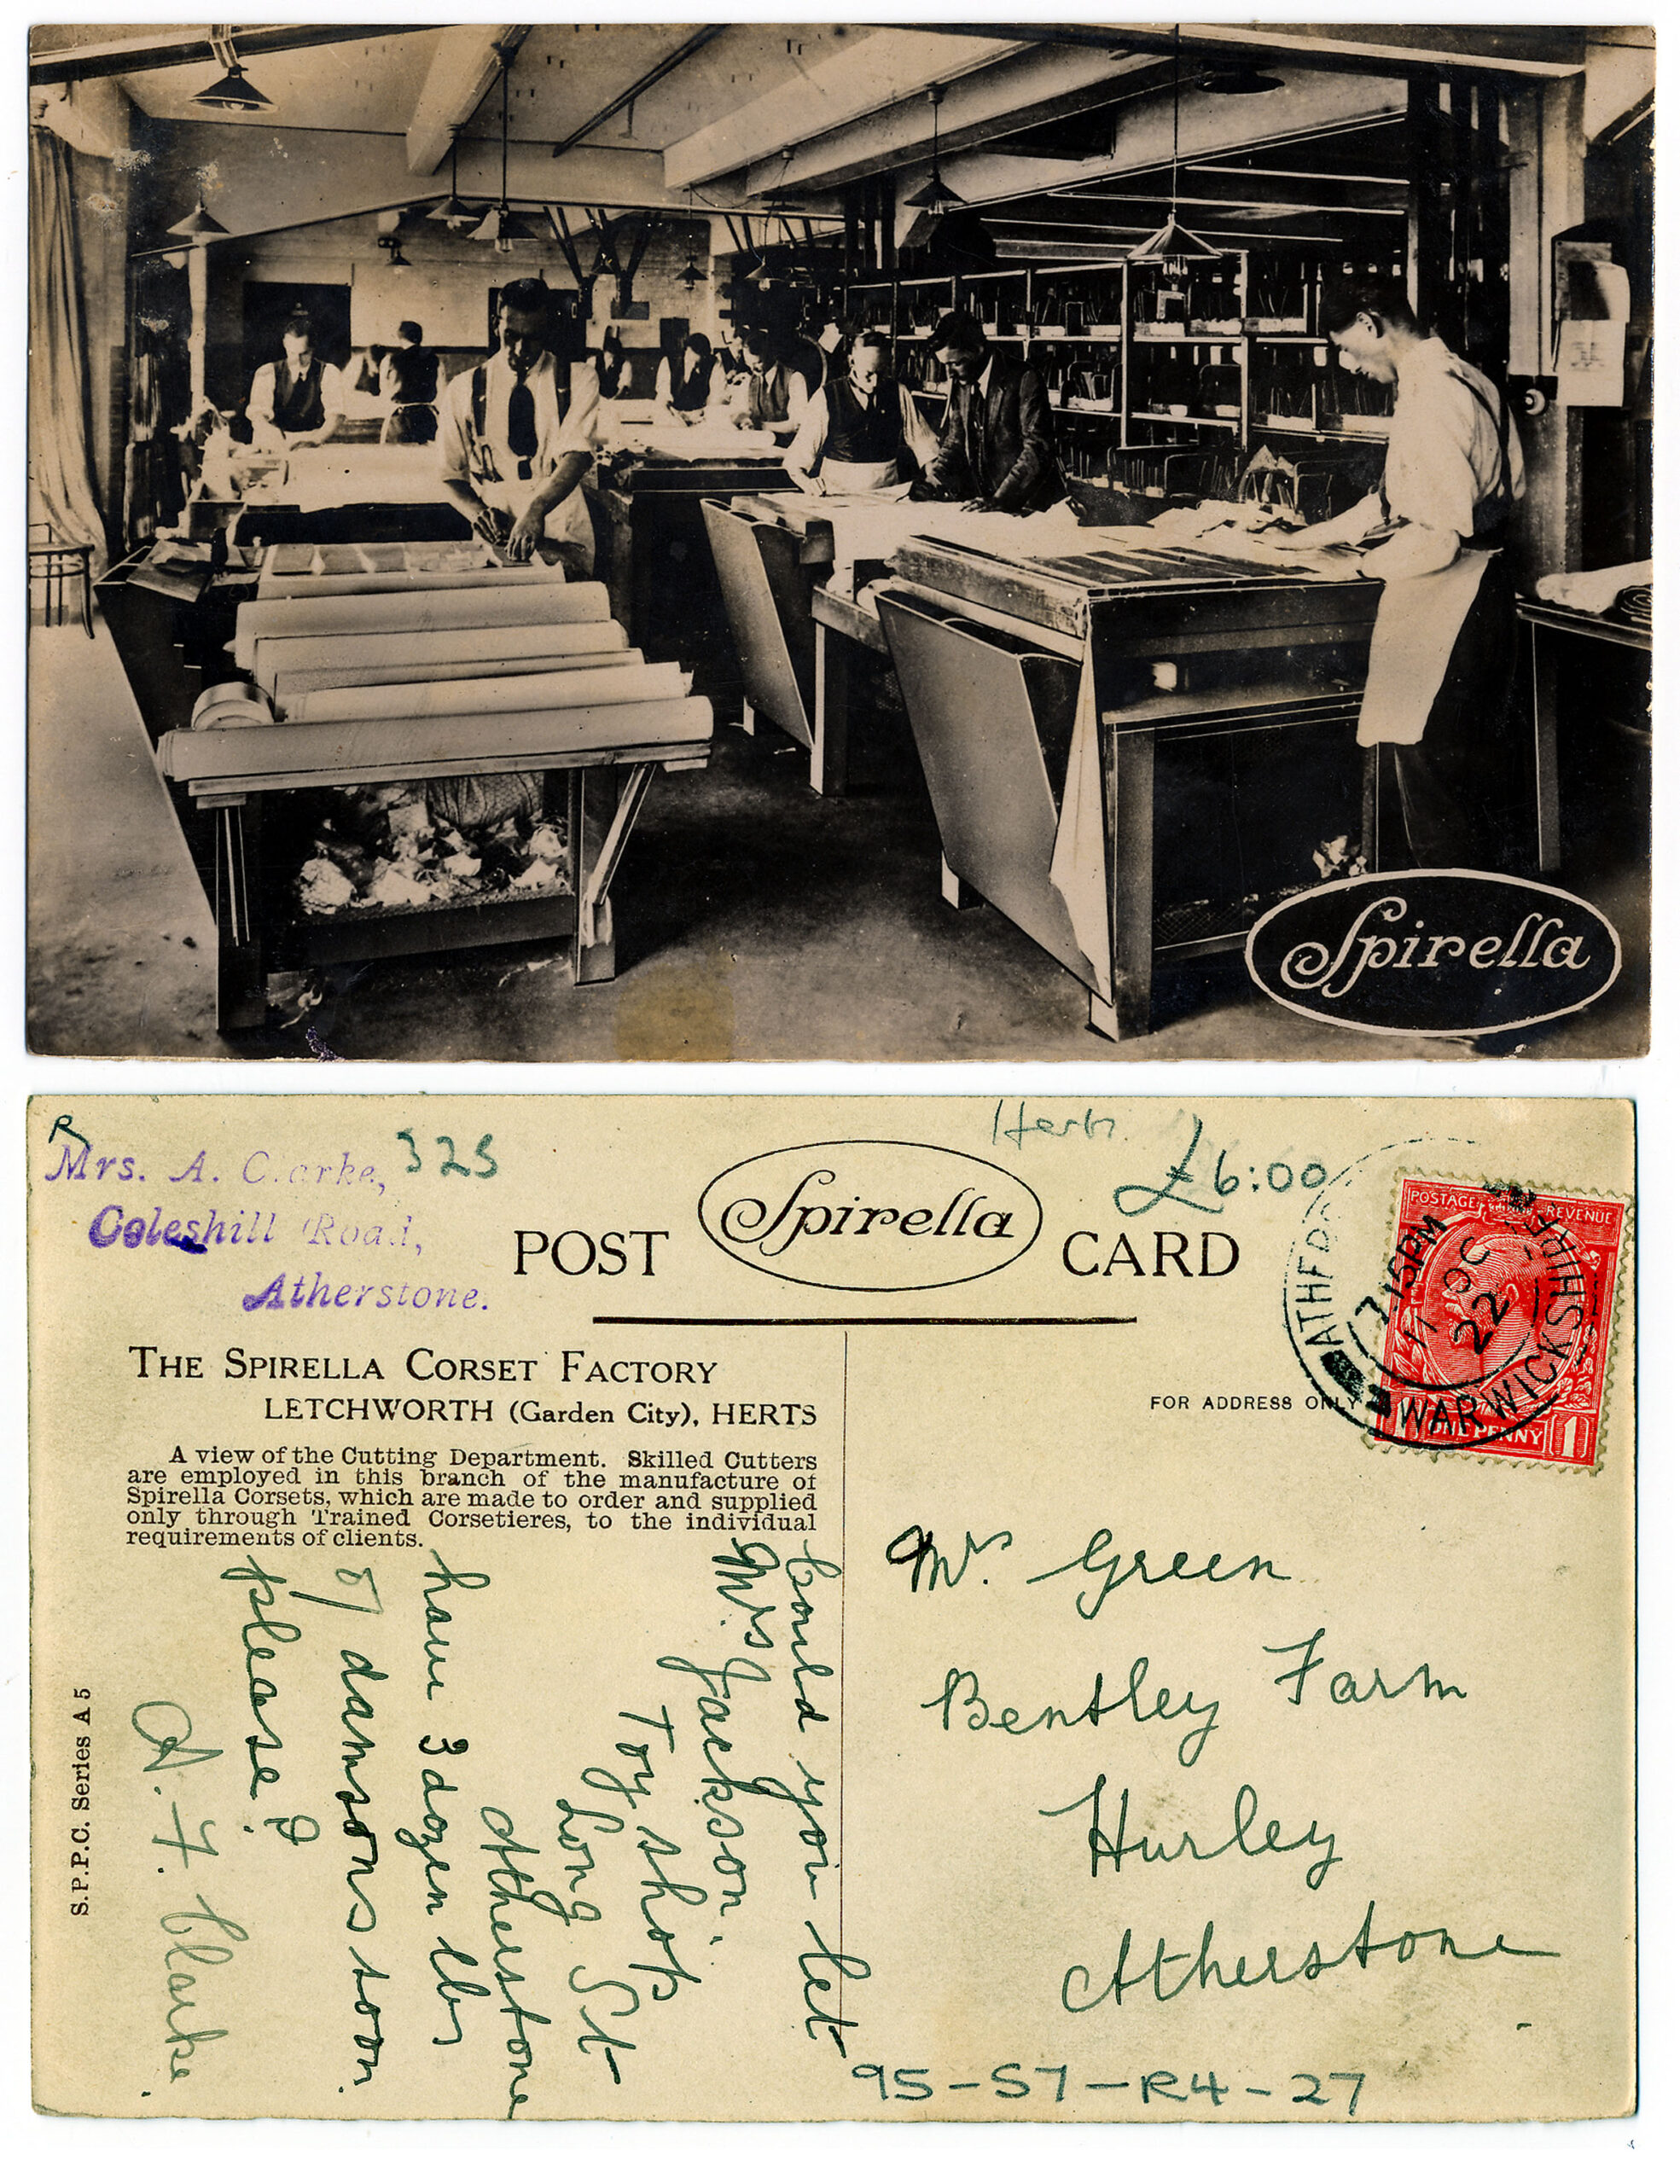 Spirella
Mrs. A. Clarke,
325
Coleshill Road,
Atherstone.
Herts.
£6:00
POST Spirella CARD
THE SPIRELLA CORSET FACTORY
LETCHWORTH (Garden City), HERTS
A view of the Cutting Department. Skilled Cutters
are employed in this branch of the manufacture of
Spirella Corsets, which are made to order and supplied
only through Trained Corsetieres, to the individual
requirements of clients.
FOR ADDRESS ONLY
POSTAGE REVENUE
ONE PENNY 1
7.15PM
11 OC
22
WARWICKSHIRE
Could you let
Mrs Jackson.
Toy shop
Long St
Atherstone
have 3 dozen lbs
of damsons soon
please?
A. F. Clarke.
S.P.P.C. Series A 5
Mrs. Green
Bentley Farm
Hurley
Atherstone
95-S7-R4-27